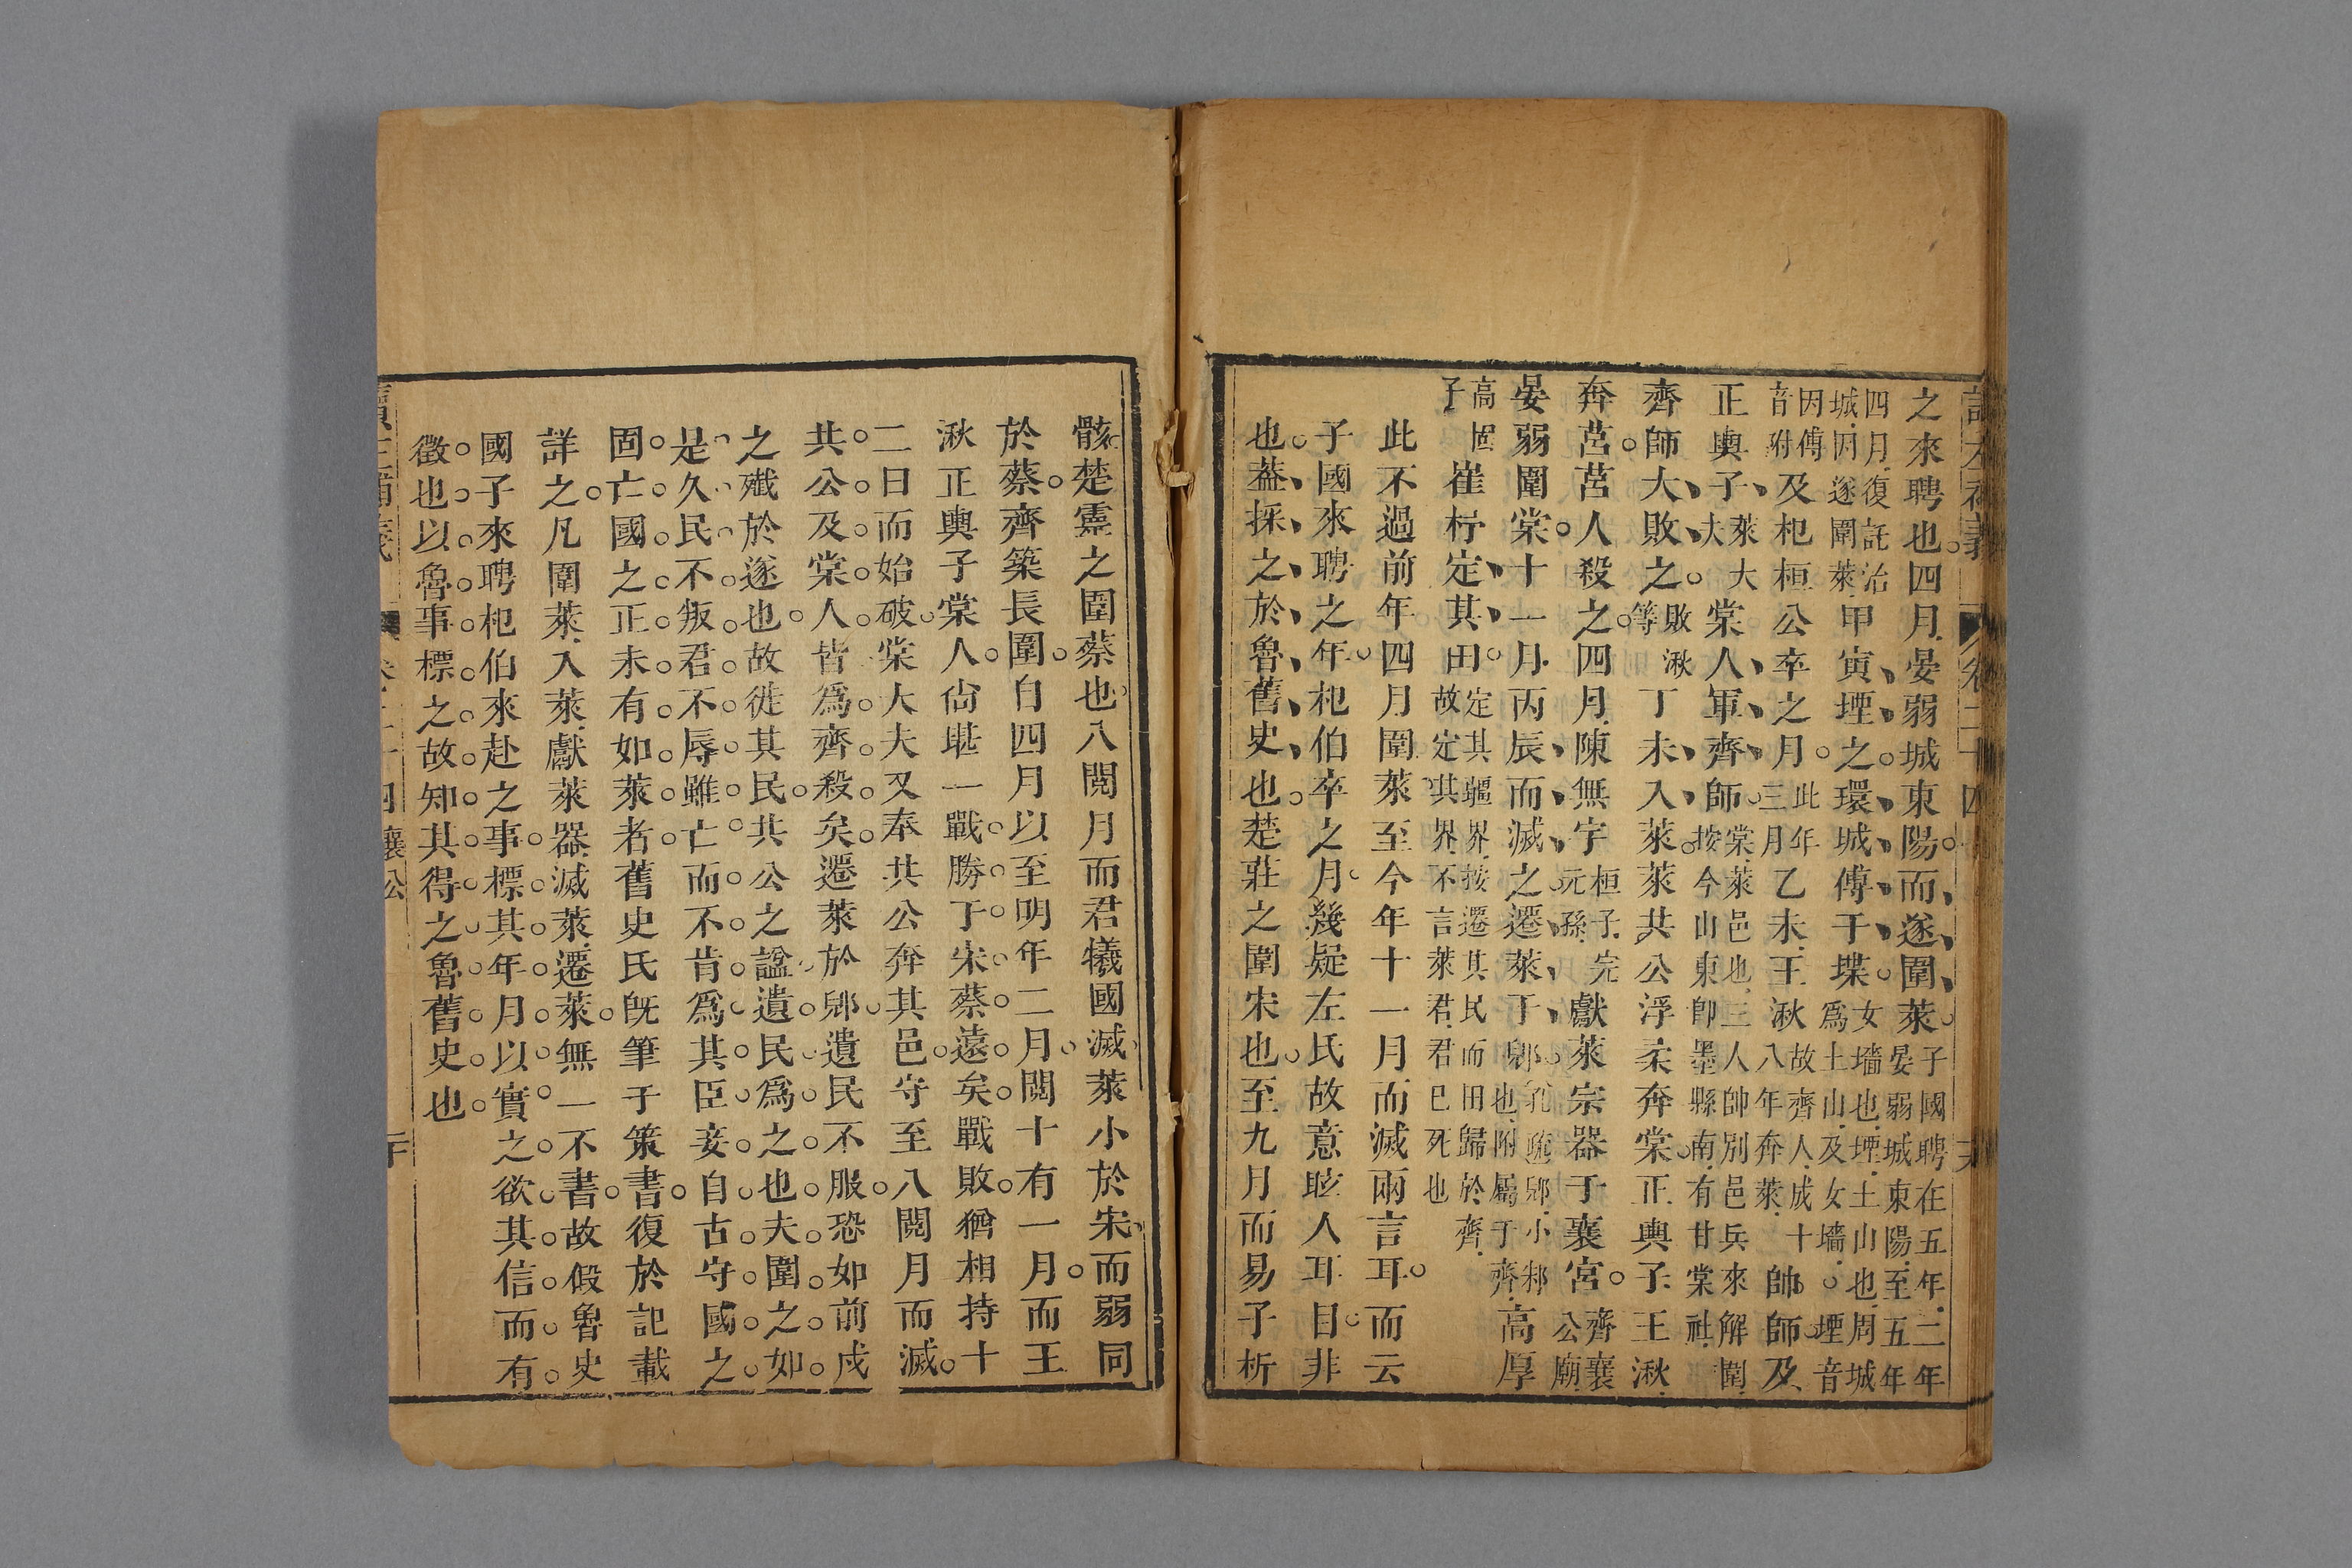 之來聘也四月晏弱城東陽而遂圍萊子國聘在五年二年晏弱城東陽至五年
四月復託治城因遂圍萊甲寅堙之環城傅于堞女墻也堙土山也周城爲土山及女墻堙音
因傅音附及杞桓公卒之月此年三月乙未王湫故齊人成十八年奔萊帥師及
正輿子萊大夫棠人軍齊師棠萊邑也三人帥別邑兵來解圍按今山東卽墨縣南有甘棠社
齊師大敗之敗湫等丁未入萊萊共公浮柔奔棠正輿子王湫
奔莒莒人殺之四月陳無宇桓子完元孫獻萊宗器于襄宮齊襄公廟
晏弱圍棠十一月丙辰而滅之遷萊于郳孔疏郳小邾也附屬于齊高厚
高固子崔杼定其田定其疆界按遷其民而田歸於齊故定其界不言萊君君已死也
此不過前年四月圍萊至今年十一月而滅兩言耳而云
子國來聘之年杞伯卒之月幾疑左氏故意眩人耳目非
也葢採之於魯舊史也楚莊之圍宋也至九月而易子析
骸楚靈之圍蔡也八閱月而君犧國滅萊小於宋而弱同
於蔡齊築長圍自四月以至明年二月閱十有一月而王
湫正輿子棠人尙堪一戰勝于宋蔡遠矣戰敗猶相持十
二日而始破棠大夫又奉共公奔其邑守至八閱月而滅
共公及棠人皆爲齊殺矣遷萊於郳遺民不服恐如前戍
之殲於遂也故徙其民共公之諡遺民爲之也夫圍之如
是久民不叛君不辱雖亡而不肯爲其臣妾自古守國之
固亡國之正未有如萊者舊史氏旣筆于策書復於記載
詳之凡圍萊入萊獻萊器滅萊遷萊無一不書故假魯史
國子來聘杞伯來赴之事標其年月以實之欲其信而有
徵也以魯事標之故知其得之魯舊史也